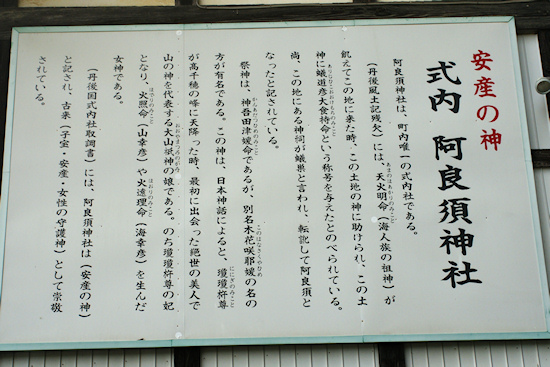 安産の神
式内 阿良須神社
阿良須神社は、町内唯一の式内社である。
(丹後風土記残欠)には、天火明命(海人族の祖神)が
飢えてこの地に来た時、この土地の神に助けられ、この土
神に蟻道彦大食持命という称号を与えたとのべられている。
尚、この地にある神祠が蟻巣と言われ、転訛して阿良須と
なったと記されている。
祭神は、神吾田津媛命であるが、別名木花咲耶媛の名の
方が有名である。この神は、日本神話によると、瓊瓊杵尊
が高千穂の峰に天降った時、最初に出会った絶世の美人で
山の神を代表する大山祇神の娘である。のち瓊瓊杵尊の妃
となり、火照命(山幸彦)や火遠理命(海幸彦)を生んだ
女神である。
(丹後国式内社取調書)には、阿良須神社は(安産の神)
と記され、古来(子宝・安産・女性の守護神)として崇敬
されている。